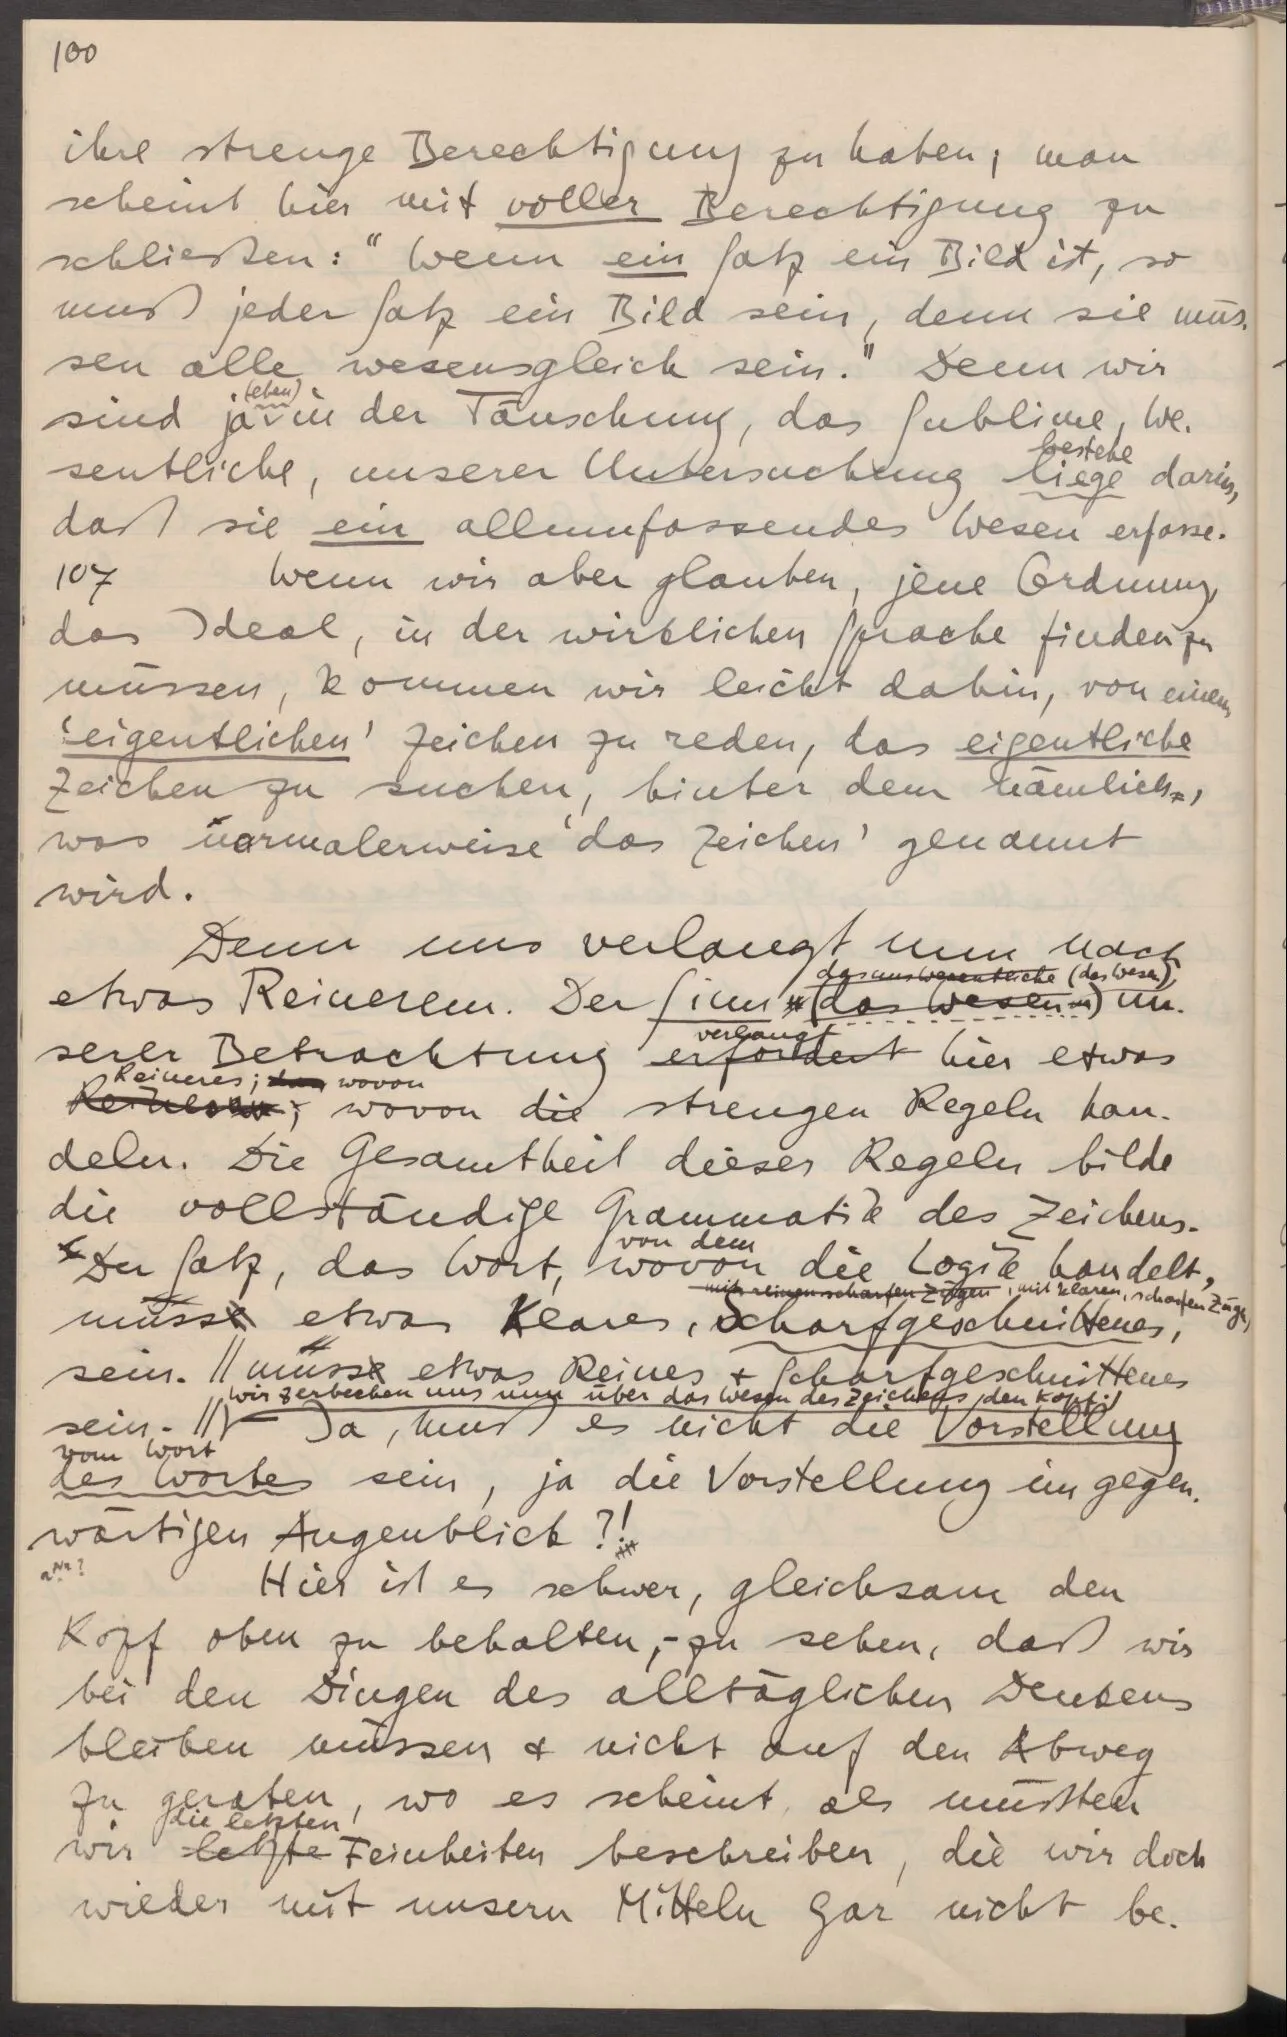 100
ihre strenge Berechtigung zu haben; man
scheint hier mit voller Berechtigung zu
schließen: "Wenn ein Satz ein Bild ist, so
muß jeder Satz ein Bild sein, denn sie müs-
sen alle wesensgleich sein." Denn wir
(eben)
sind ja in der Täuschung, das Sublime, We-
bestehe
sentliche, unserer Untersuchung liege darin,
daß sie ein allumfassendes Wesen erfasse.
107 Wenn wir aber glauben, jene Ordnung,
das Ideal, in der wirklichen Sprache finden zu
müssen, kommen wir leicht dahin, von einem
'eigentlichen' Zeichen zu reden, das eigentliche
Zeichen zu suchen, hinter dem nämlich,
was normalerweise 'das Zeichen' genannt
wird.
Denn uns verlangt nun nach
(das Wesen)
etwas Reinerem. Der Sinn (das Wesen) un-
verlangt
serer Betrachtung erfordert hier etwas
Reineres; wovon
wovon die strengen Regeln han-
deln. Die Gesamtheit dieser Regeln bilde
die vollständige Grammatik des Zeichens.
von dem
Der Satz, das Wort, wovon die Logik handelt,
mit reinen scharfen Zügen, mit klaren, scharfen Zügen,
müsse etwas Klares, Scharfgeschnittenes,
sein. // müsse etwas Reines + Scharfgeschnittenes
wir zerbrechen uns nun über das Wesen des Zeichens den Kopf:
sein. // Ja, muß es nicht die Vorstellung
vom Wort
des Wortes sein, ja die Vorstellung im gegen-
wärtigen Augenblick?!
Hier ist es schwer, gleichsam den
Kopf oben zu behalten,- zu sehen, daß wir
bei den Dingen des alltäglichen Denkens
bleiben müssen + nicht auf den Abweg
zu geraten, wo es scheint, als müßten
die letzten
wir letzte Feinheiten beschreiben, die wir doch
wieder mit unsern Mitteln gar nicht be-